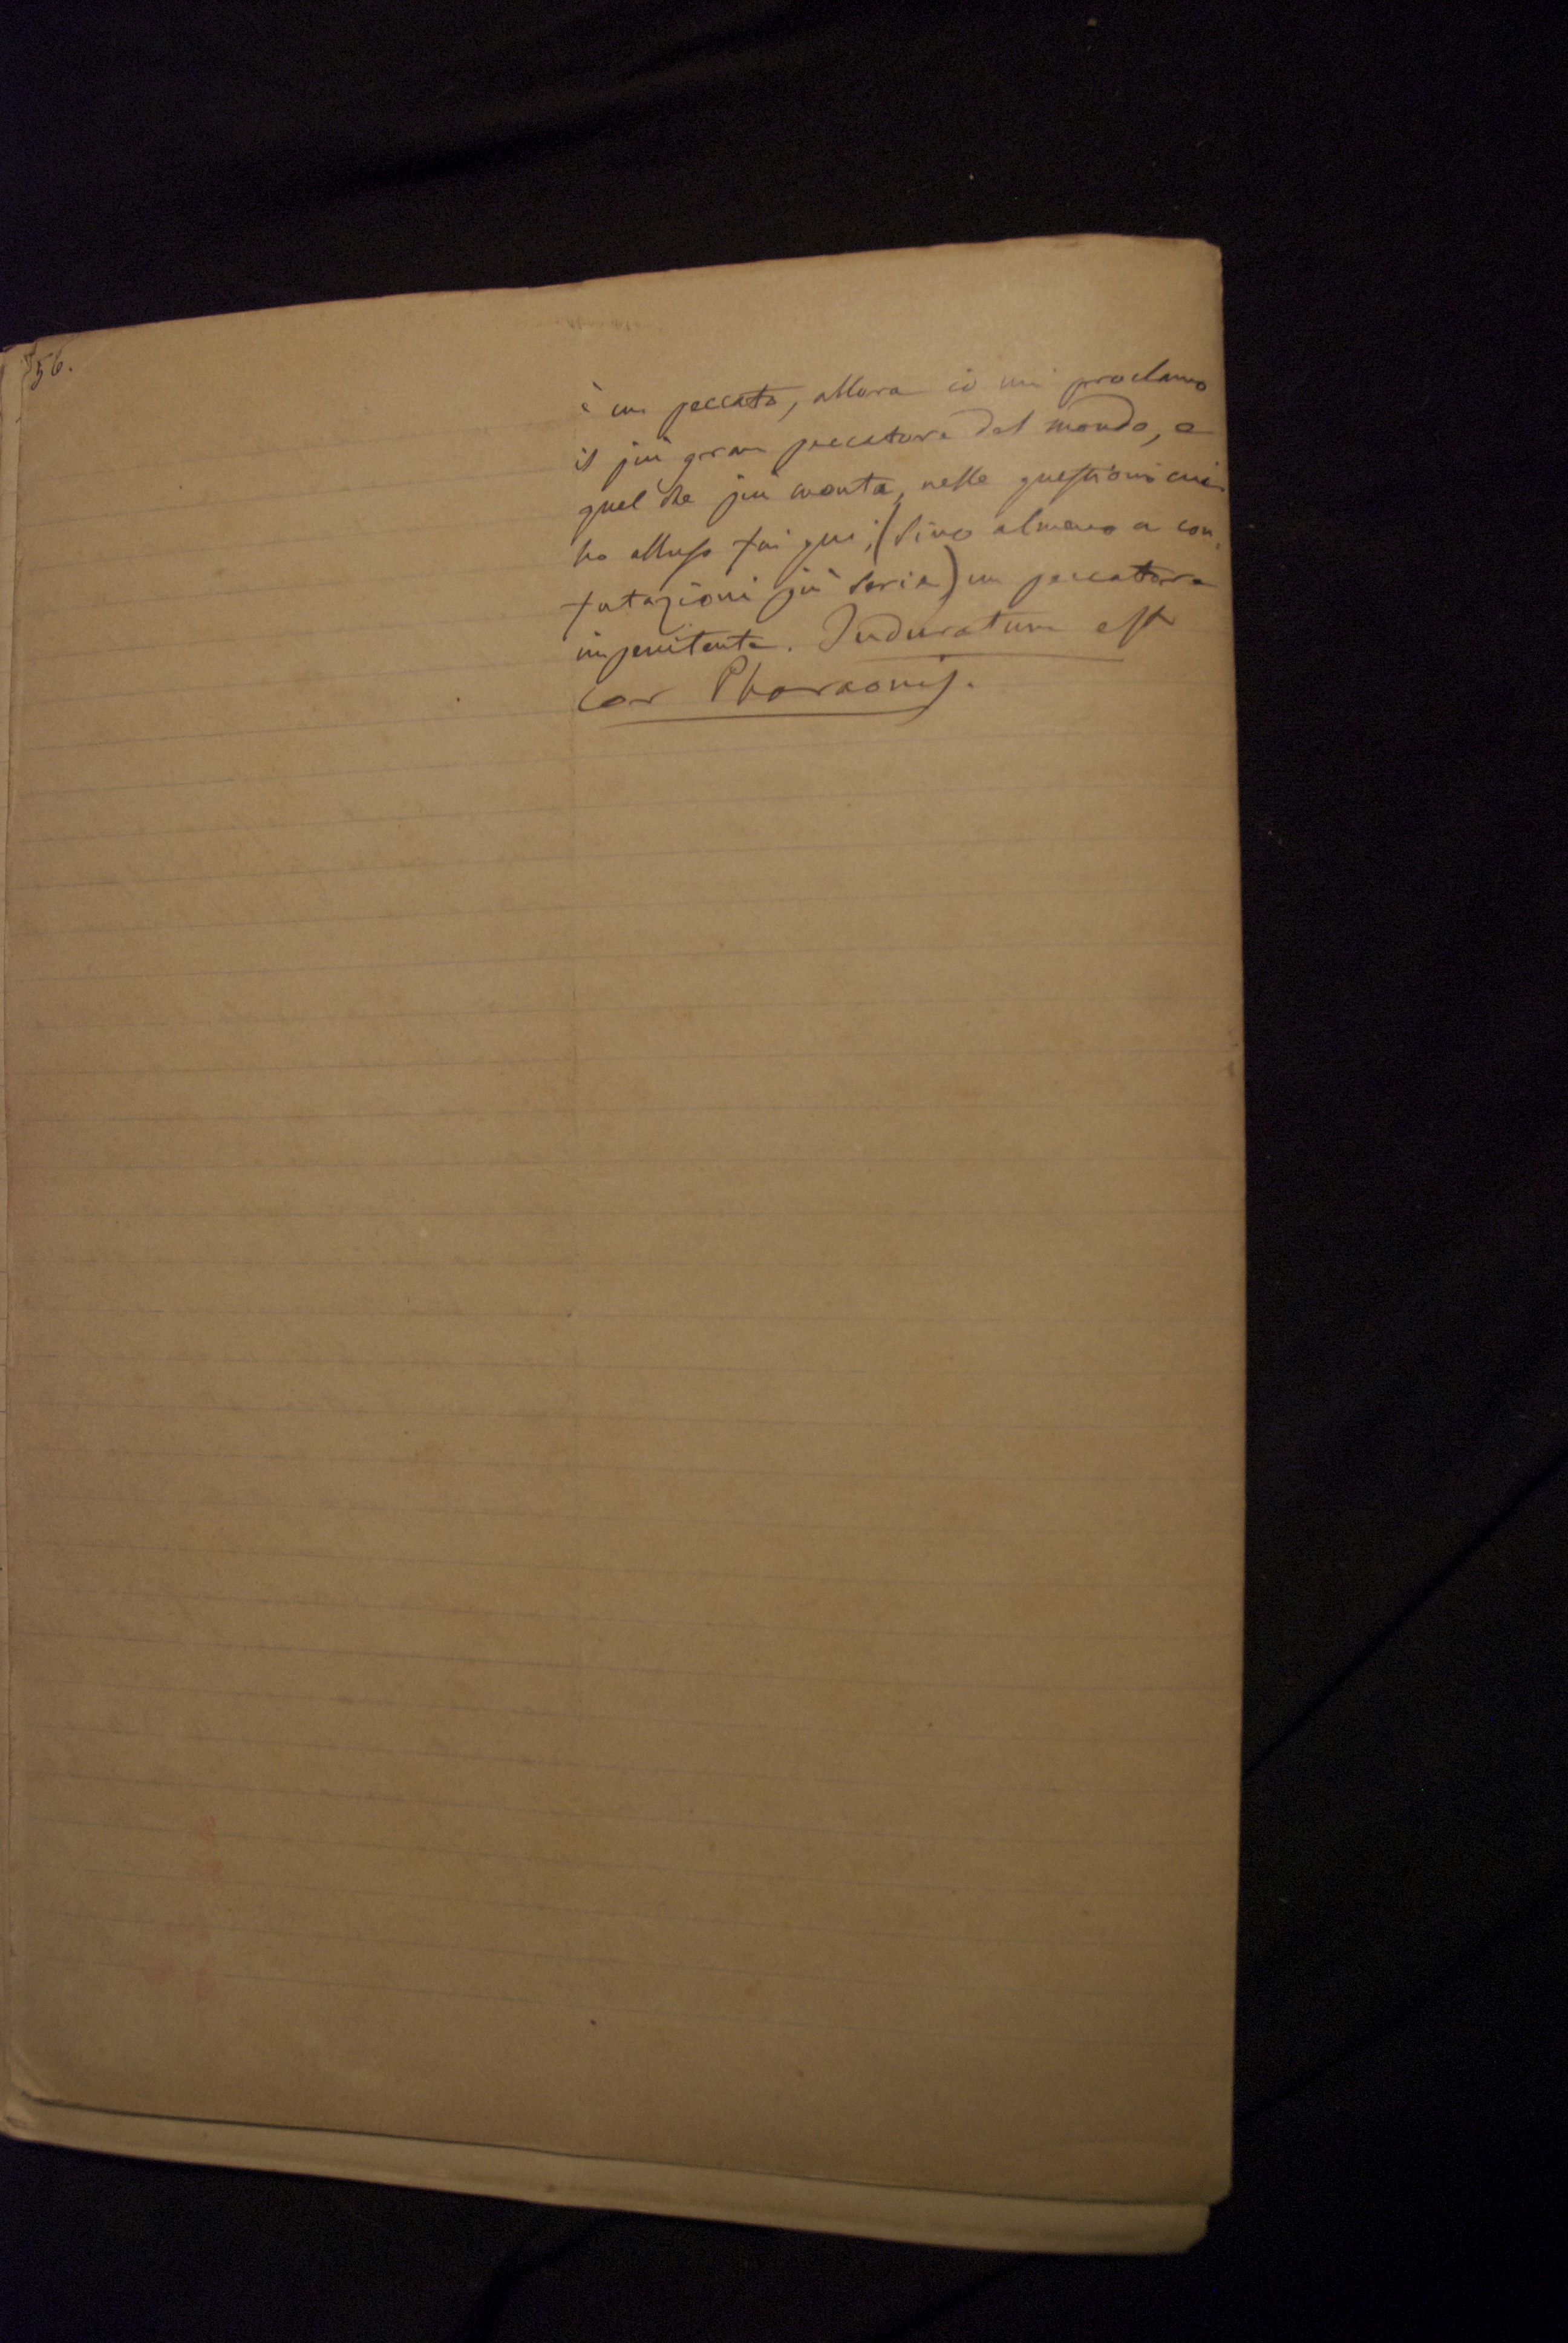 156.
è un peccato, allora io mi proclamo
il più gran peccatore del mondo, e
quel che più monta, nelle questioni cui
ho alluso fin qui, (sino almeno a con-
futazioni più serie) un peccatore
impenitente. Induratum est
cor Pharaonis.